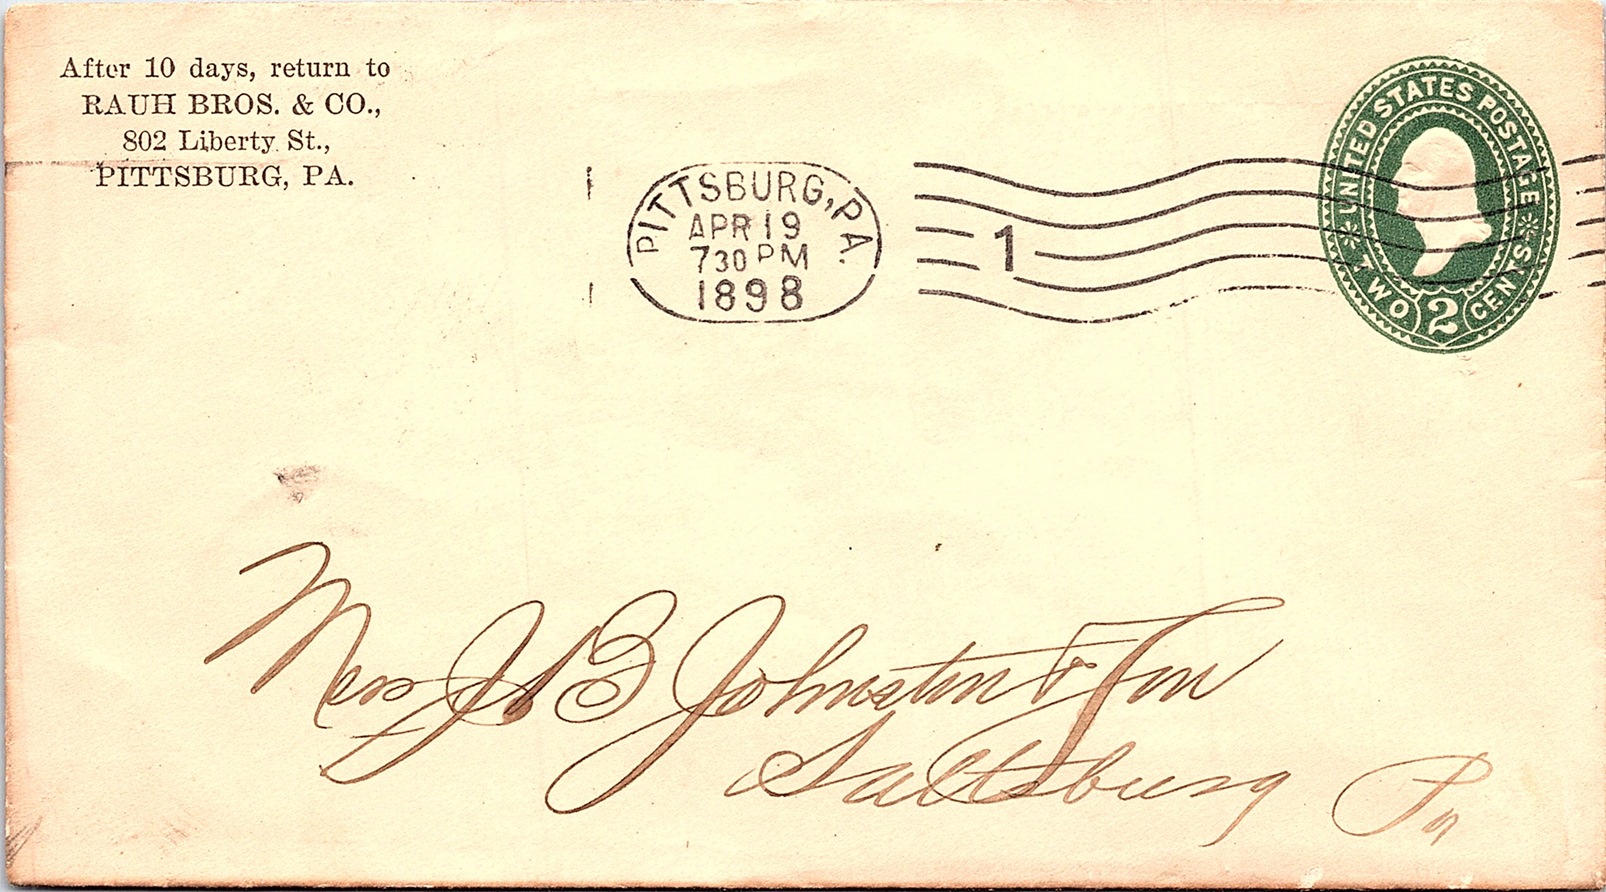 After 10 days, return to
RAUH BROS. & CO.,
802 Liberty St.,
PITTSBURG, PA.
PITTSBURG, PA.
APR 19
730 PM
1898
1
UNITED STATES POSTAGE
TWO 2 CENTS
J. B Johnston &
Saltsburg Pa